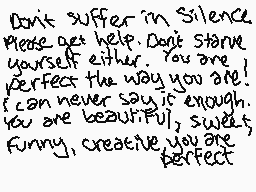 Don't suffer in silence
Please get help. Don't starve
yourself either. You are
perfect the way you are!
I can never say it enough.
You are beautiful, sweet,
funny, creative, you are
perfect